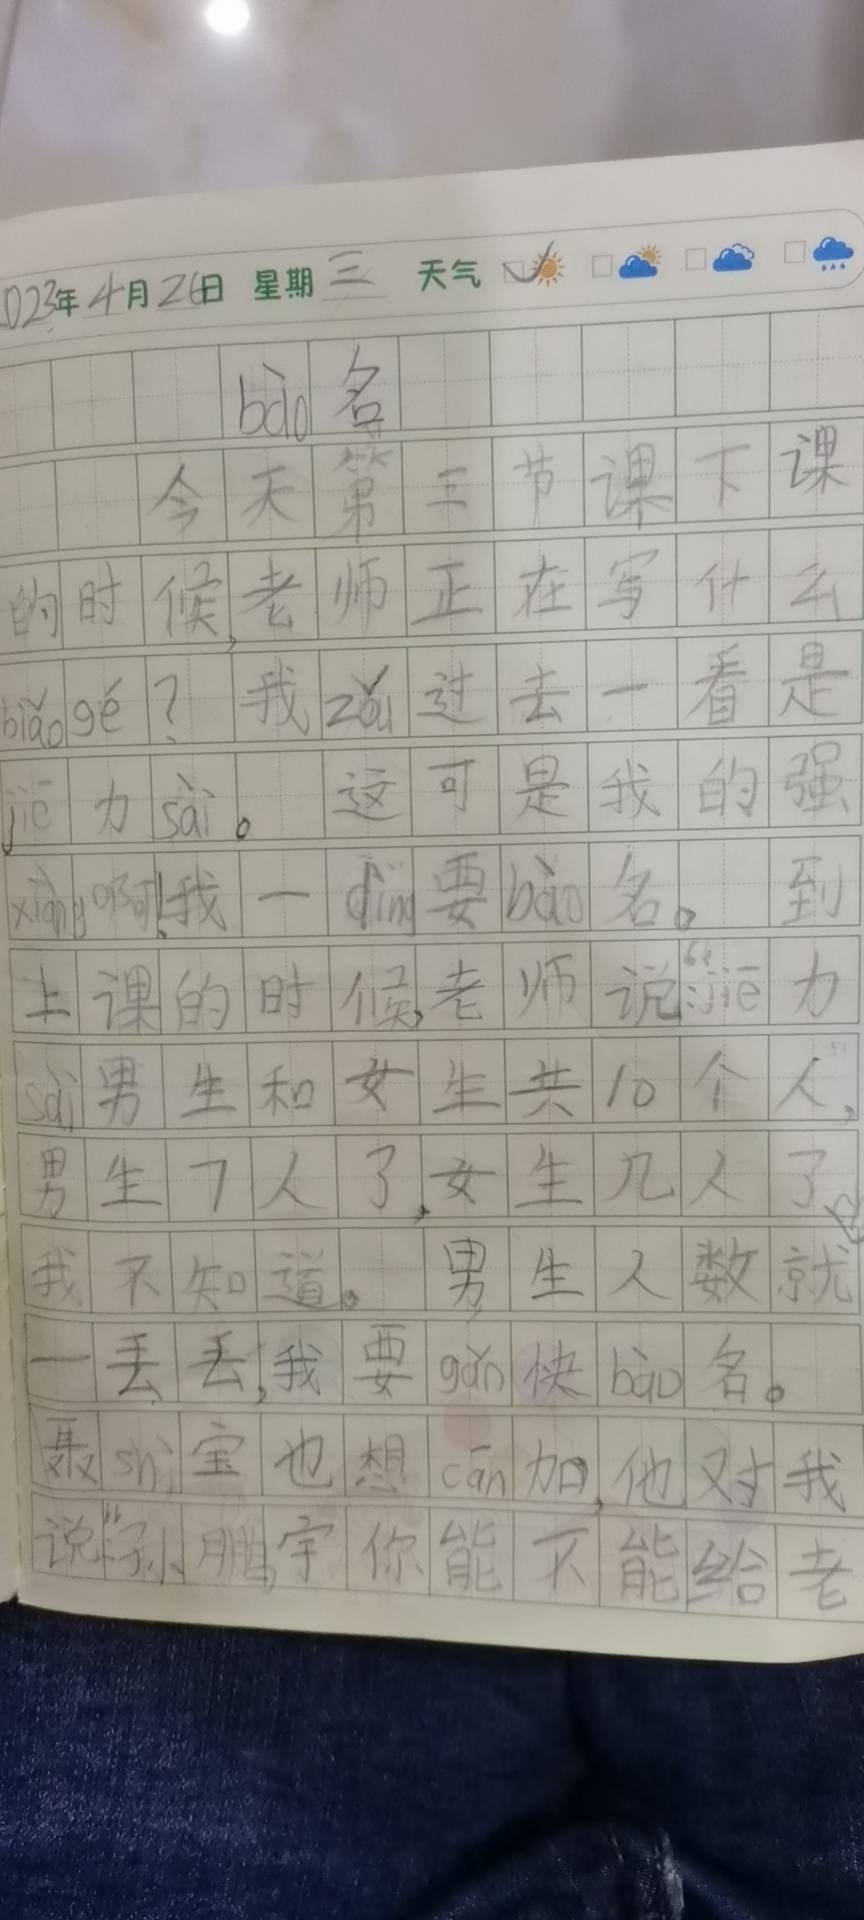 023年4月26日 星期三 天气
bào名
今天第三节课下课
的时候,老师正在写什么
biǎogé?我zǒu过去一看是
jiē力sài。这可是我的强
xiàng啊!我一dìng要bào名。到
上课的时候,老师说:“jiē力
sài男生和女生共10个人,
男生7人了,女生几人了
我不知道。男生人数就
一丢丢,我要gǎn快bào名。
聂shì宝也想cān加,他对我
说:“孙鹏宇你能不能给老